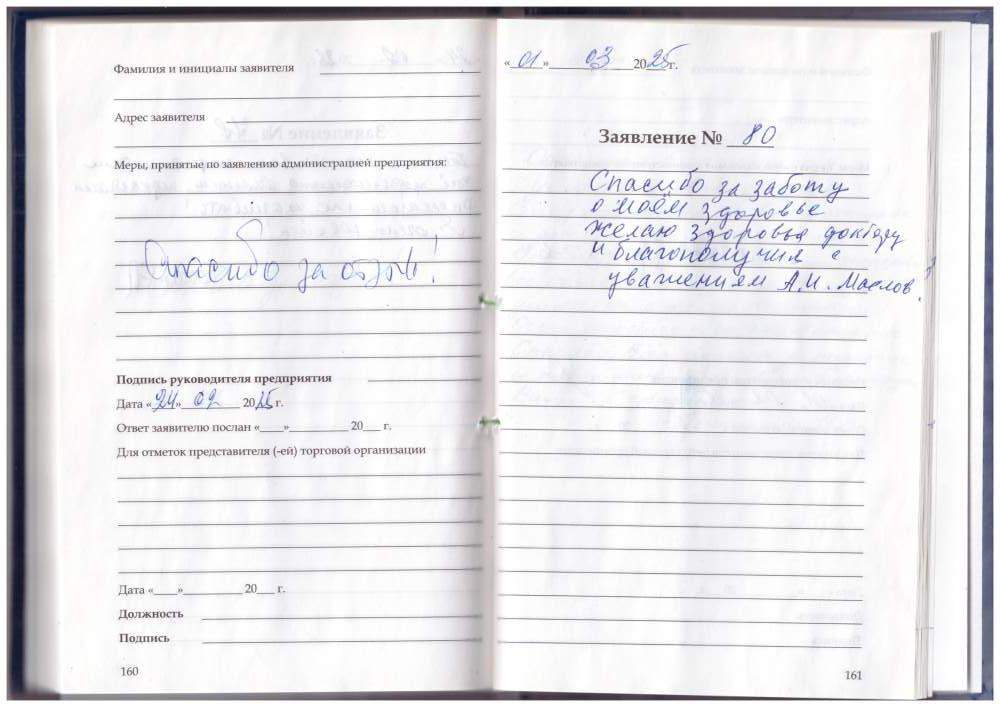 Фамилия и инициалы заявителя
Адрес заявителя
Меры, принятые по заявлению администрацией предприятия:
Спасибо за отзыв!
Подпись руководителя предприятия
Дата «24» 02 2025 г.
Ответ заявителю послан «___»__________ 20___ г.
Для отметок представителя (-ей) торговой организации
Дата «____»__________ 20___ г.
Должность
Подпись
160
«01» 03 2025 г.
Заявление № 80
Спасибо за заботу
о моём здоровье
желаю здоровья доктору
и благополучия с
уважением А.И. Маслов.
161